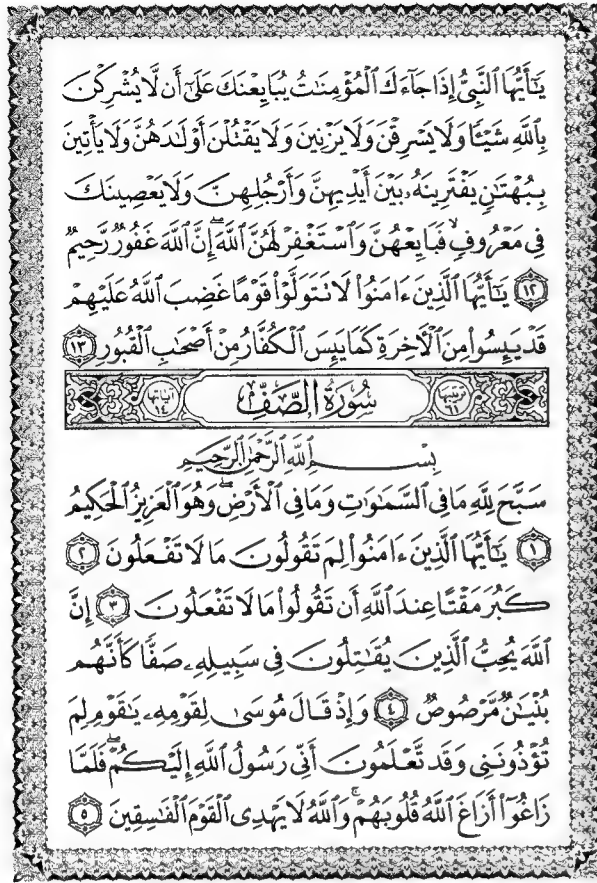 يَٰٓأَيُّهَا ٱلنَّبِىُّ إِذَا جَآءَكَ ٱلْمُؤْمِنَٰتُ يُبَايِعْنَكَ عَلَىٰٓ أَن لَّا يُشْرِكْنَ
بِٱللَّهِ شَيْـًٔا وَلَا يَسْرِقْنَ وَلَا يَزْنِينَ وَلَا يَقْتُلْنَ أَوْلَٰدَهُنَّ وَلَا يَأْتِينَ
بِبُهْتَٰنٍ يَفْتَرِينَهُۥ بَيْنَ أَيْدِيهِنَّ وَأَرْجُلِهِنَّ وَلَا يَعْصِينَكَ
فِى مَعْرُوفٍ ۙ فَبَايِعْهُنَّ وَٱسْتَغْفِرْ لَهُنَّ ٱللَّهَ ۖ إِنَّ ٱللَّهَ غَفُورٌ رَّحِيمٌ
١٢ يَٰٓأَيُّهَا ٱلَّذِينَ ءَامَنُوا۟ لَا تَتَوَلَّوْا۟ قَوْمًا غَضِبَ ٱللَّهُ عَلَيْهِمْ
قَدْ يَئِسُوا۟ مِنَ ٱلْءَاخِرَةِ كَمَا يَئِسَ ٱلْكُفَّارُ مِنْ أَصْحَٰبِ ٱلْقُبُورِ ١٣
ترتيبها ٦١ سُورَةُ الصَّفِّ آياتها ١٤
بِسْمِ ٱللَّهِ ٱلرَّحْمَٰنِ ٱلرَّحِيمِ
سَبَّحَ لِلَّهِ مَا فِى ٱلسَّمَٰوَٰتِ وَمَا فِى ٱلْأَرْضِ ۖ وَهُوَ ٱلْعَزِيزُ ٱلْحَكِيمُ
١ يَٰٓأَيُّهَا ٱلَّذِينَ ءَامَنُوا۟ لِمَ تَقُولُونَ مَا لَا تَفْعَلُونَ ٢
كَبُرَ مَقْتًا عِندَ ٱللَّهِ أَن تَقُولُوا۟ مَا لَا تَفْعَلُونَ ٣ إِنَّ
ٱللَّهَ يُحِبُّ ٱلَّذِينَ يُقَٰتِلُونَ فِى سَبِيلِهِۦ صَفًّا كَأَنَّهُم
بُنْيَٰنٌ مَّرْصُوصٌ ٤ وَإِذْ قَالَ مُوسَىٰ لِقَوْمِهِۦ يَٰقَوْمِ لِمَ
تُؤْذُونَنِى وَقَد تَّعْلَمُونَ أَنِّى رَسُولُ ٱللَّهِ إِلَيْكُمْ ۖ فَلَمَّا
زَاغُوٓا۟ أَزَاغَ ٱللَّهُ قُلُوبَهُمْ ۚ وَٱللَّهُ لَا يَهْدِى ٱلْقَوْمَ ٱلْفَٰسِقِينَ ٥